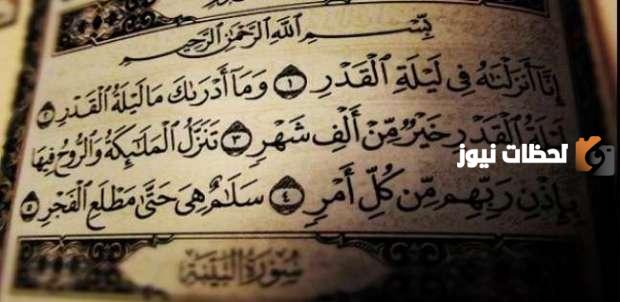 بِسْمِ اللَّهِ الرَّحْمَٰنِ الرَّحِيمِ
إِنَّا أَنزَلْنَاهُ فِي لَيْلَةِ الْقَدْرِ ١ وَمَا أَدْرَاكَ مَا لَيْلَةُ الْقَدْرِ ٢
لَيْلَةُ الْقَدْرِ خَيْرٌ مِّنْ أَلْفِ شَهْرٍ ٣ تَنَزَّلُ الْمَلَائِكَةُ وَالرُّوحُ فِيهَا
بِإِذْنِ رَبِّهِم مِّن كُلِّ أَمْرٍ ٤ سَلَامٌ هِيَ حَتَّىٰ مَطْلَعِ الْفَجْرِ ٥
سُورَةُ الْبَيِّنَةِ
لحظات نيوز